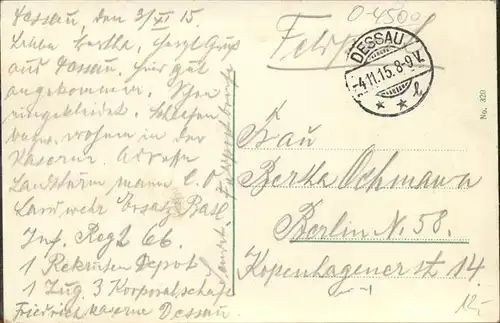 Dessau, den 3/XI 15.
Liebe Bertha, Herzl Gruß
aus Dessau. Hier gut
angekommen. Schon
eingekleidet. Schlafen
bezw. wohnen in der
Kaserne. Adresse
Landsturmmann C. O.
Landwehr Ersatz Batl
Inf. Regt 66.
1 Rekruten Depot
1 Zug 3 Korporalschaft
Friedrichkaserne Dessau.
0-4500
Feldpost
DESSAU
-4.11.15.8-9V.
* * k
No. 820
Frau
Bertha Ochmann
Berlin N. 58.
Kopenhagener str 14.
12,-